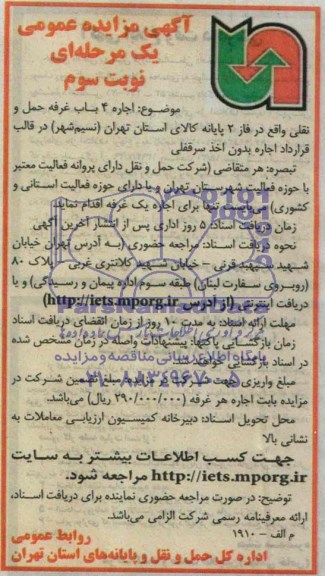 آگهی مزایده عمومی
یک مرحله‌ای
نوبت سوم
موضوع: اجاره ۴ باب غرفه حمل و
نقلی واقع در فاز ۲ پایانه کالای استان تهران (نسیم‌شهر) در قالب
قرارداد اجاره بدون اخذ سرقفلی
تبصره: هر متقاضی (شرکت حمل و نقل دارای پروانه فعالیت معتبر
با حوزه فعالیت شهرستان تهران و یا دارای حوزه فعالیت استانی و
کشوری) می‌بایست تنها برای اجاره یک غرفه اقدام نماید.
زمان دریافت اسناد: ۵ روز اداری پس از انتشار آخرین آگهی
نحوه دریافت اسناد: مراجعه حضوری (به آدرس تهران خیابان
شهید سپهبد قرنی - خیابان شهید کلانتری غربی - پلاک ۸۰
(روبروی سفارت لبنان) طبقه سوم اداره پیمان و رسیدگی) و یا
دریافت اینترنتی (از آدرس http://iets.mporg.ir)
مهلت ارائه اسناد: به مدت ۱۰ روز از زمان انقضای دریافت اسناد
زمان بازگشایی پاکتها: پیشنهادات واصله در زمان مشخص شده
در اسناد بازگشایی خواهد شد.
مبلغ واریزی جهت شرکت در مزایده: مبلغ تضمین شرکت در
مزایده بابت اجاره هر غرفه (۳۹۰/۰۰۰/۰۰۰) ریال) می‌باشد.
محل تحویل اسناد: دبیرخانه کمیسیون ارزیابی معاملات به
نشانی بالا
جهت کسب اطلاعات بیشتر به سایت
http://iets.mporg.ir مراجعه شود.
توضیح: در صورت مراجعه حضوری نماینده برای دریافت اسناد،
ارائه معرفینامه رسمی شرکت الزامی می‌باشد.
م الف - ۱۹۱۰
روابط عمومی
اداره کل حمل و نقل و پایانه‌های استان تهران
ParsNamadData
پایگاه اطلاع رسانی مناقصه و مزایده
۰۲۱-۸۸۳۴۹۶۷۰-۵